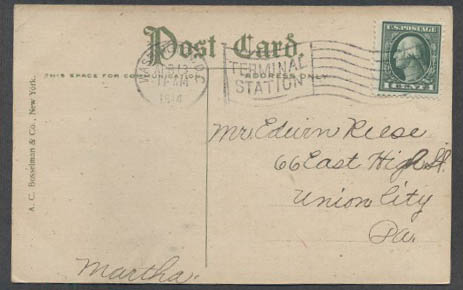 Post Card.
THIS SPACE FOR COMMUNICATION
ADDRESS ONLY
TERMINAL
STATION
U.S. POSTAGE
A. C. Bosselman & Co., New York.
Mr. Edwin Reese
66 East High St.
Union City
Pa.
Martha.